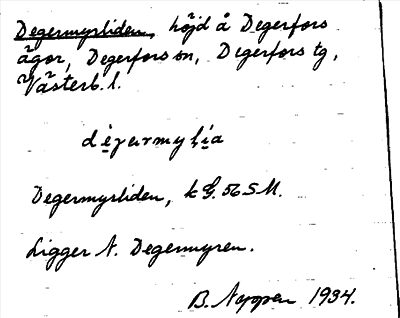 Degermyrliden, höjd å Degerfors
ägor, Degerfors sn, Degerfors tg,
Västerb. l.
Degermyrliden, k G. 56 SM.
Ligger N. Degermyren.
B. 1934.